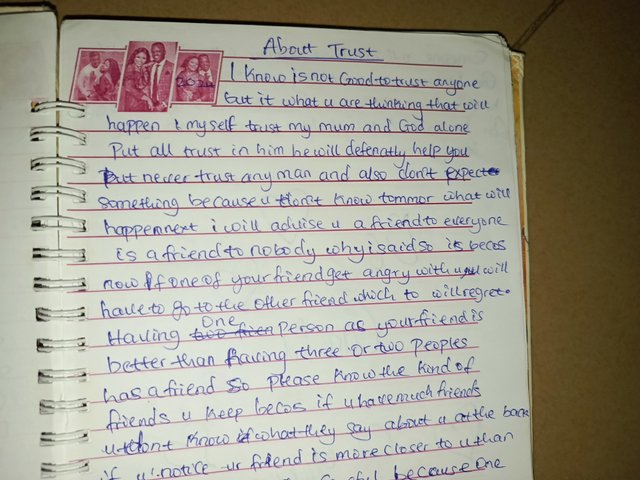 About Trust
I know is not Good to trust anyone
but it what u are thinking that will
happen i myself trust my mum and God alone
Put all trust in him he will defenatly help you
But never trust any man and also don't expecte
something because u don't know tommor what will
happen next i will advise u a friend to everyone
is a friend to nobody why i said so is becos
now if one of your friend get angry with u, u will
have to go to the other friend which to will regret.
Having one person as your friend is
better than having three or two peoples
has a friend so please know the kind of
friends u keep becos if u have much friends
u don't know if what they say about u at the back
if u notice ur friend is more closer to u than
because one